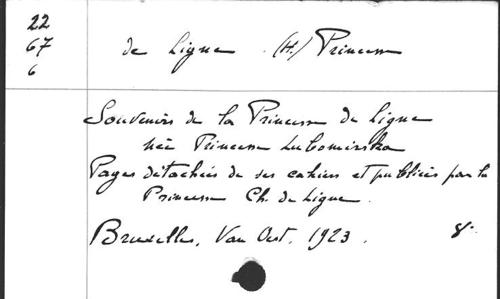 22
67
6
de Ligne (H.) Princesse
Souvenirs de la Princesse de Ligne
née Princesse Lubomirska
Pages détachées de ses cahiers et publiées par la
Princesse Ch. de Ligne.
Bruxelles, Van Oest, 1923. 8°